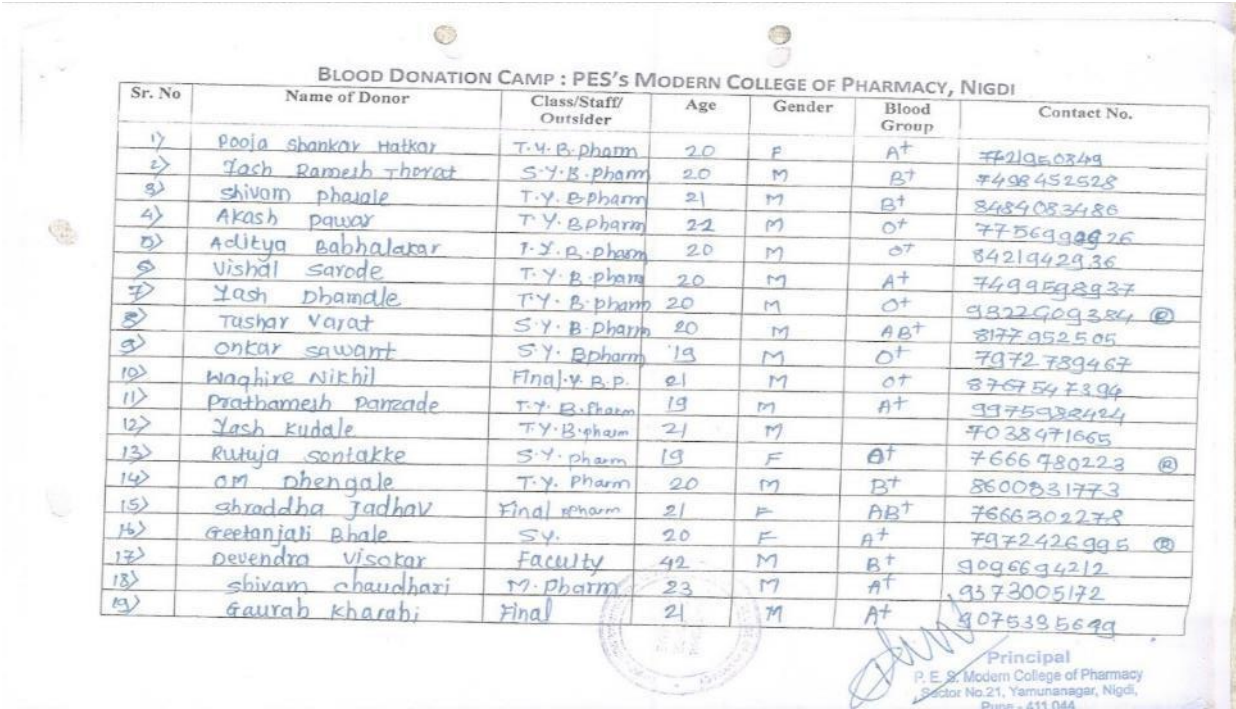 BLOOD DONATION CAMP : PES'S MODERN COLLEGE OF PHARMACY, NIGDI
Sr. No Name of Donor Class/Staff/ Outsider Age Gender Blood Group Contact No.
1) Pooja Shankar Hatkar T.Y.B.pharm 20 F A+
2) Yash Ramesh Thorat S.Y.B.pharm 20 M B+ 7498452528
3) Shivam T.Y. B.pharm 21 M B+ 8484083486
4) Akash pawar T.Y. Bpharm 22 M O+
5) Aditya Babhalakar T.Y.B.pharm 20 M O+ 8421942936
6) Vishal Sarode T.Y.B.pharm 20 A+ M 7499598937
7) Yash Dhamale T.Y.B.pharm 20 M O+ 9822909384 R
8) Tushar Varat S.Y.B.pharm 20 M AB+ 8177952505
9) Onkar Sawant S.Y. Bpharm 19 M O+ 7972789467
10) Waghire Nikhil Final.Y.B.P. 21 M O+ 8767547394
11) Prathamesh Panzade T.Y.B.Pharm 19 M A+
12) Yash Kudale T.Y.B.pharm 21 M 7038471665
13) Rutuja Sontakke S.Y.pharm 19 F 7666780223 R
14) OM Dhengale T.Y. Pharm 20 M B+ 8600831773
15) Shraddha Jadhav Final 21 F AB+ 7666302278
16) Geetanjali Bhale S.Y. 20 F A+ 7972426995 R
17) Devendra Visokar Faculty 42 M B+ 9096694212
18) Shivam Chaudhari M.Pharm 23 M A+ 9373005172
19) Gaurab Kharabi Final 21 M A+
Principal
P. E. S. Modern College of Pharmacy
Sector No.21, Yamunanagar, Nigdi,
Pune - 411 044